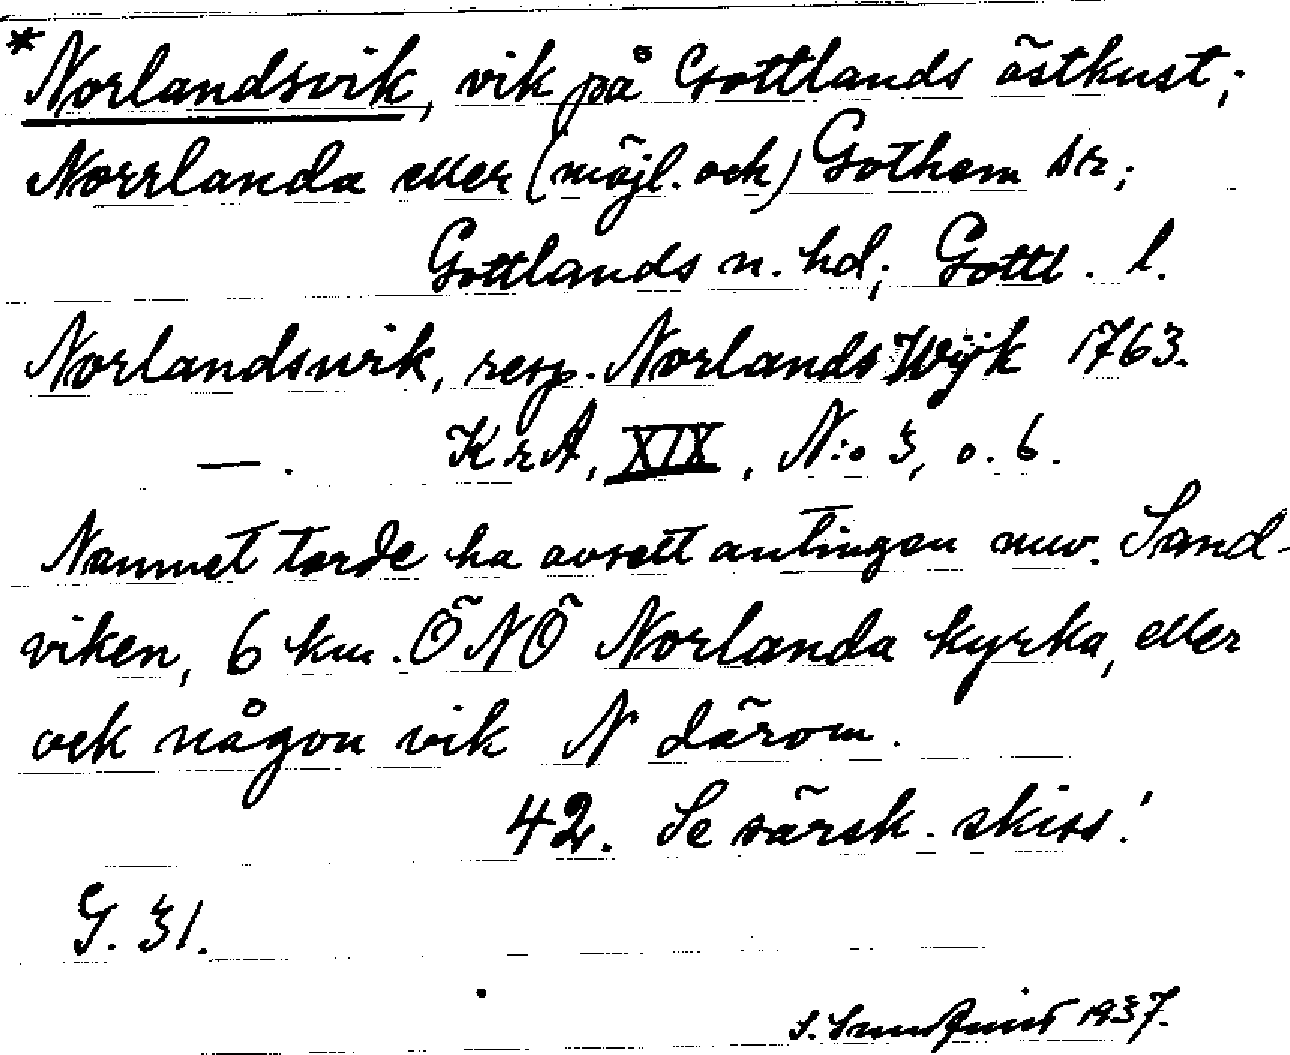 *Norlandsvik, vik på Gottlands östkust;
Norrlanda eller (möjl. ock) Gothem sr;
Gottlands n. hd; Gottl. l.
Norlandsvik, resp. Norlands Wijk 1763.
—. KrA, XIX, N:o 3, o. 6.
Namnet torde ha avsett antingen nuv. Sand-
viken, 6 km. ÖNÖ Norlanda kyrka, eller
ock någon vik N därom.
42. Se särsk. skiss!
G. 31.
S. 1937.